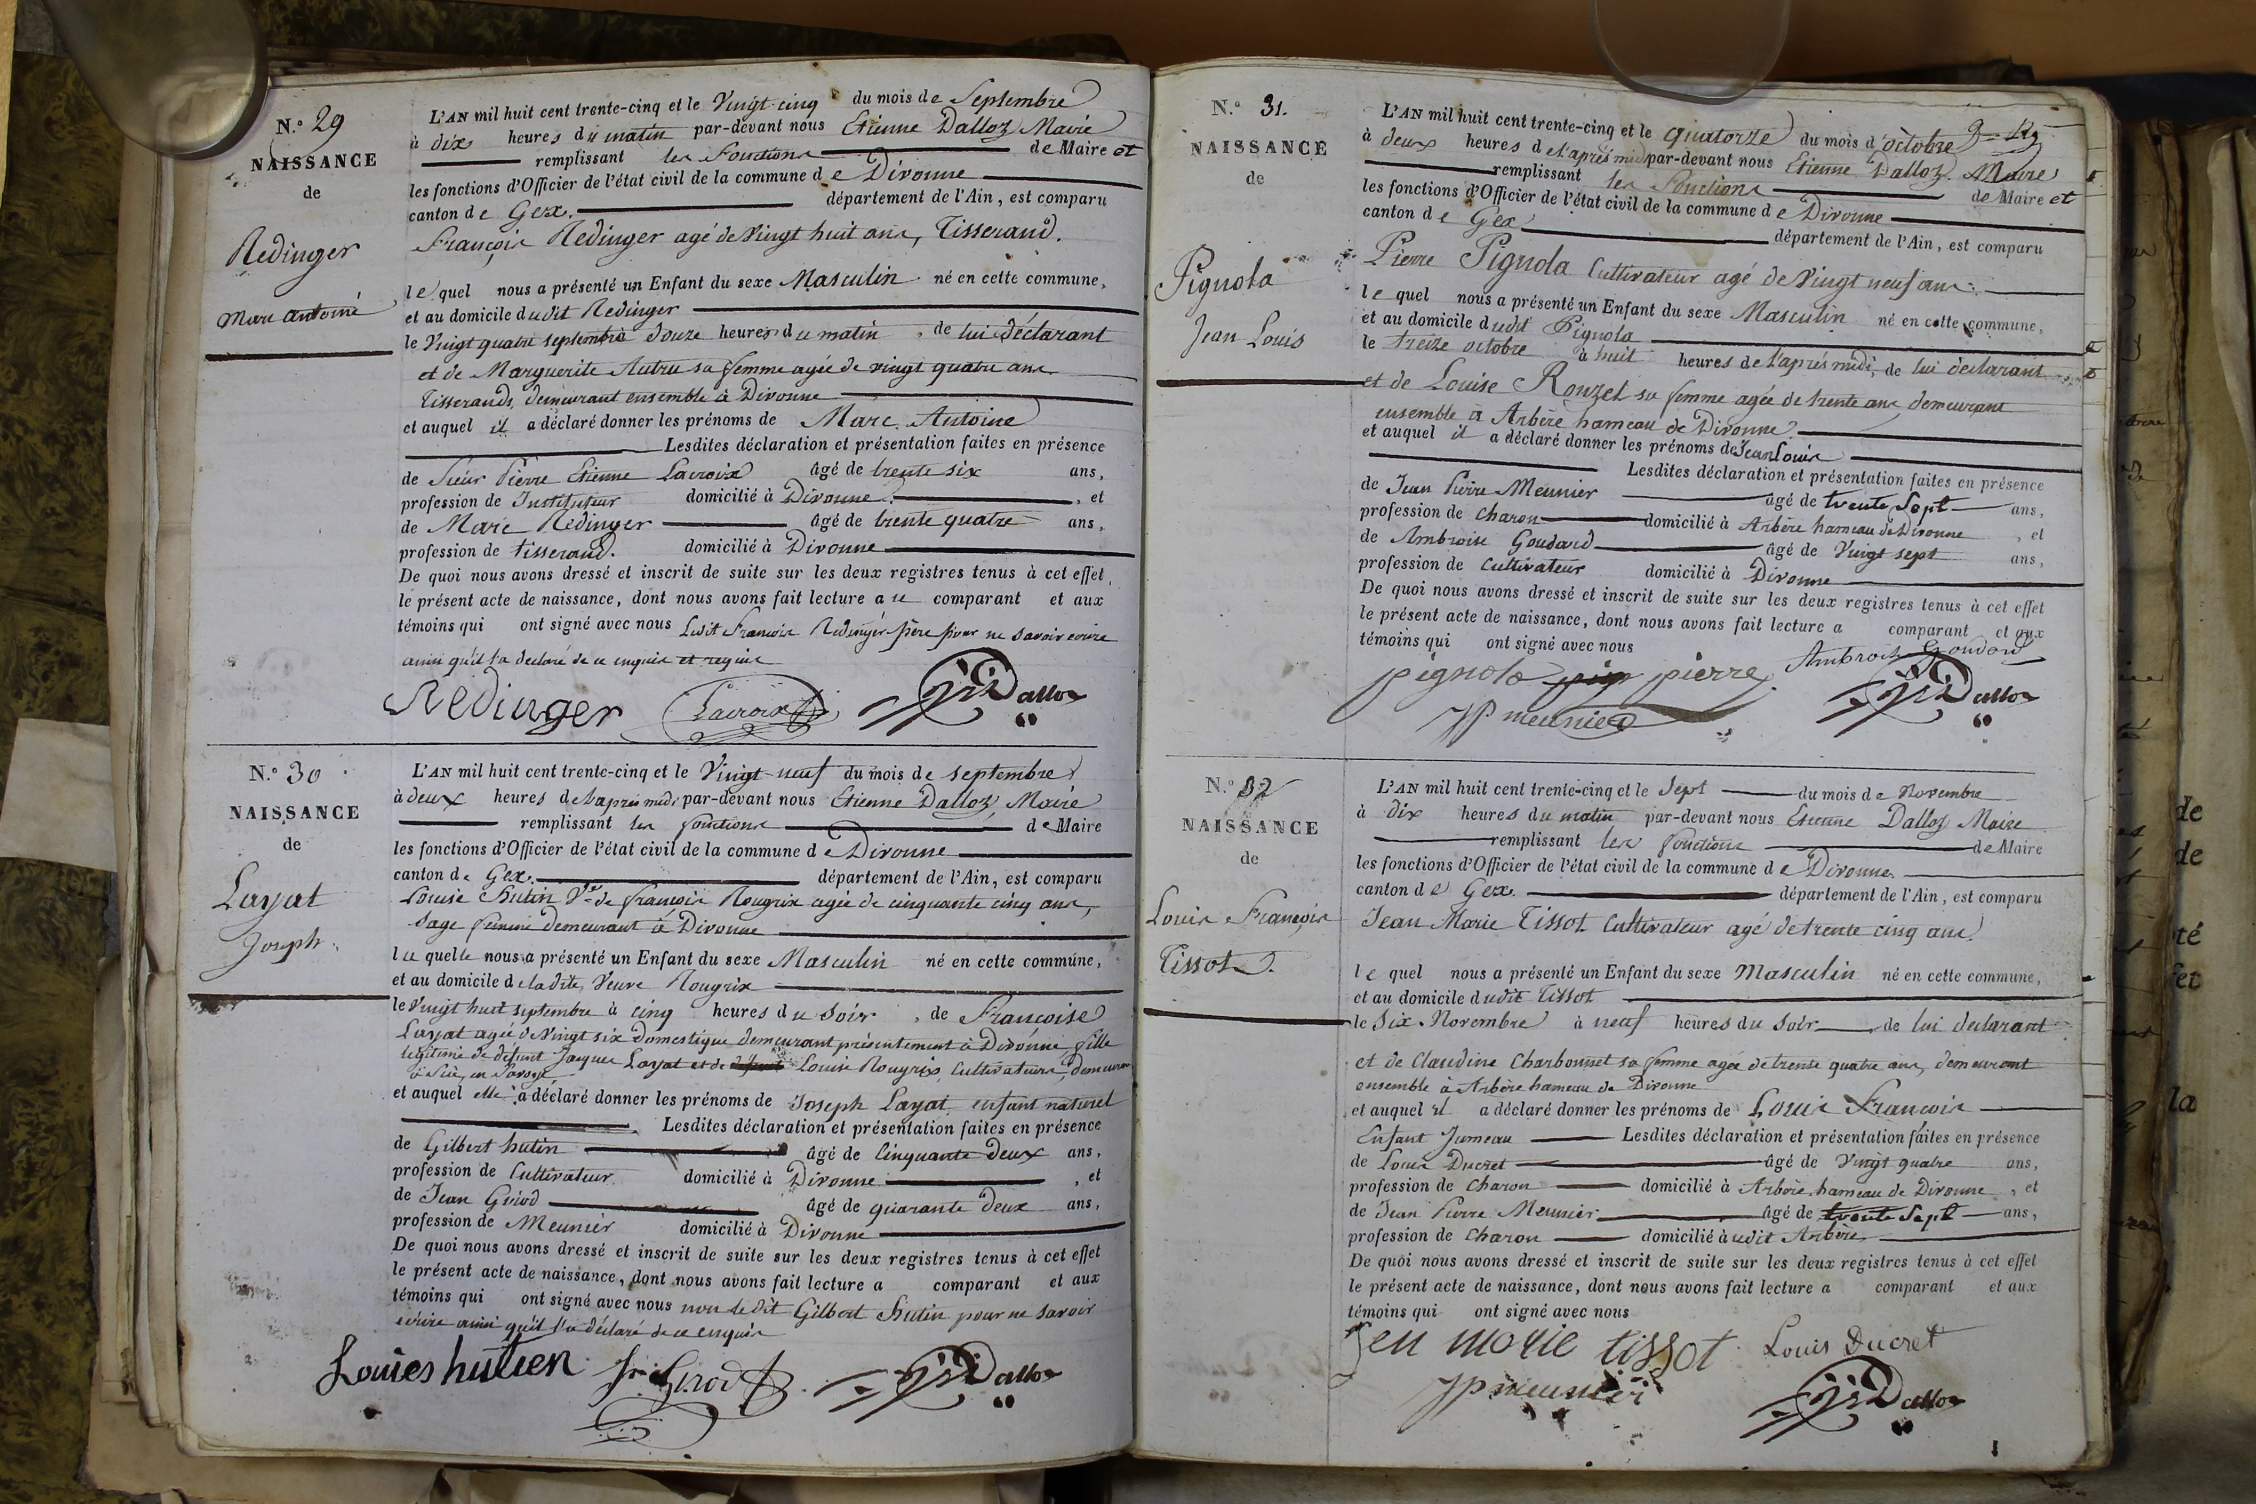 N.° 29
NAISSANCE
de
Redinger
Marc Antoine
L'AN mil huit cent trente-cinq et le Vingt cinq du mois de Septembre
à dix heures du matin par-devant nous Etienne Dalloz Maire
remplissant les fonctions de Maire et
les fonctions d'Officier de l'état civil de la commune de Divonne
canton de Gex. département de l'Ain, est comparu
François Redinger agé de Vingt huit ans, Tisserand.
lequel nous a présenté un Enfant du sexe Masculin né en cette commune,
et au domicile dudit Redinger
le Vingt quatre septembre douze heures du matin, de lui déclarant
et de Marguerite Autru sa femme agée de vingt quatre ans
Tisserands, demeurant ensemble à Divonne
et auquel il a déclaré donner les prénoms de Marc Antoine
Lesdites déclaration et présentation faites en présence
de Sieur Pierre Etienne Lacroix âgé de trente six ans,
profession de Instituteur domicilié à Divonne, et
de Marc Redinger âgé de trente quatre ans,
profession de tisserand. domicilié à Divonne
De quoi nous avons dressé et inscrit de suite sur les deux registres tenus à cet effet,
le présent acte de naissance, dont nous avons fait lecture au comparant et aux
témoins qui ont signé avec nous Ledit François Redinger père pour ne savoir écrire
ainsi qu'il l'a declaré de ce enquis et requis
Redinger Lacroix Dalloz
N.° 30
NAISSANCE
de
Layat
Joseph
L'AN mil huit cent trente-cinq et le Vingt-neuf du mois de septembre
à deux heures de l'après midi par-devant nous Etienne Dalloz, Maire
remplissant les fonctions de Maire
les fonctions d'Officier de l'état civil de la commune de Divonne
canton de Gex. département de l'Ain, est comparu
Louise Hutin Vve de François Rougrix agée de cinquante cinq ans,
Sage femme demeurant à Divonne
laquelle nous a présenté un Enfant du sexe Masculin né en cette commune,
et au domicile de ladite Veuve Rougrix
le Vingt huit septembre à cinq heures du soir, de Francoise
Layat agée de Vingt six Domestique demeurant présentement à Divonne fille
légitime de défunt Jacques Layat et de Louise Rougrix, Cultivateurs, demeurant
en Savoye
et auquel elle a déclaré donner les prénoms de Joseph Layat enfant naturel
Lesdites déclaration et présentation faites en présence
de Gilbert hutin âgé de Cinquante deux ans,
profession de Cultivateur domicilié à Divonne, et
de Jean Girod âgé de quarante deux ans,
profession de Meunier domicilié à Divonne
De quoi nous avons dressé et inscrit de suite sur les deux registres tenus à cet effet
le présent acte de naissance, dont nous avons fait lecture a comparant et aux
témoins qui ont signé avec nous non ledit Gilbert Hutin pour ne savoir
écrire ainsi qu'il l'a déclaré de ce enquis
Louies hutien Jn Girod Dalloz
N.° 31.
NAISSANCE
de
Pignola
Jean Louis
L'AN mil huit cent trente-cinq et le quatorze du mois d'octobre
à deux heures de l'après midi par-devant nous Etienne Dalloz. Maire
remplissant les fonctions de Maire et
les fonctions d'Officier de l'état civil de la commune de Divonne
canton de Gex département de l'Ain, est comparu
Pierre Pignola Cultivateur agé de Vingt neuf ans
lequel nous a présenté un Enfant du sexe Masculin né en cette commune,
et au domicile dudit Pignola
le treize octobre à huit heures de l'après midi, de lui déclarant
et de Louise Ronzel sa femme agée de trente ans demeurant
ensemble à Arbère hameau de Divonne
et auquel il a déclaré donner les prénoms de Jean Louis
Lesdites déclaration et présentation faites en présence
de Jean Pierre Meunier âgé de trente Sept ans,
profession de Charon domicilié à Arbère hameau de Divonne, et
de Ambroise Goudard âgé de Vingt sept ans,
profession de Cultivateur domicilié à Divonne
De quoi nous avons dressé et inscrit de suite sur les deux registres tenus à cet effet
le présent acte de naissance, dont nous avons fait lecture a comparant et aux
témoins qui ont signé avec nous
pignola pierre Ambroise Goudard
JP meunier Dalloz
N.° 32
NAISSANCE
de
Louis François
Tissot
L'AN mil huit cent trente-cinq et le Sept du mois de Novembre
à Dix heures du matin par-devant nous Etienne Dalloz Maire
remplissant les fonctions de Maire
les fonctions d'Officier de l'état civil de la commune de Divonne
canton de Gex. département de l'Ain, est comparu
Jean Marie Tissot Cultivateur agé de trente cinq ans.
lequel nous a présenté un Enfant du sexe Masculin né en cette commune,
et au domicile dudit Tissot
le Six Novembre à neuf heures du soir de lui declarant
et de Claudine Charbonnet sa femme agée de trente quatre ans, demeurant
ensemble à Arbère hameau de Divonne
et auquel il a déclaré donner les prénoms de Louis François
Enfant Jumeau Lesdites déclaration et présentation faites en présence
de Louis Ducret âgé de Vingt quatre ans,
profession de Charon domicilié à Arbère hameau de Divonne, et
de Jean Pierre Meunier âgé de trente Sept ans,
profession de Charon domicilié audit Arbère
De quoi nous avons dressé et inscrit de suite sur les deux registres tenus à cet effet
le présent acte de naissance, dont nous avons fait lecture a comparant et aux
témoins qui ont signé avec nous
Jen marie tissot Louis Ducret
JP meunier Dalloz